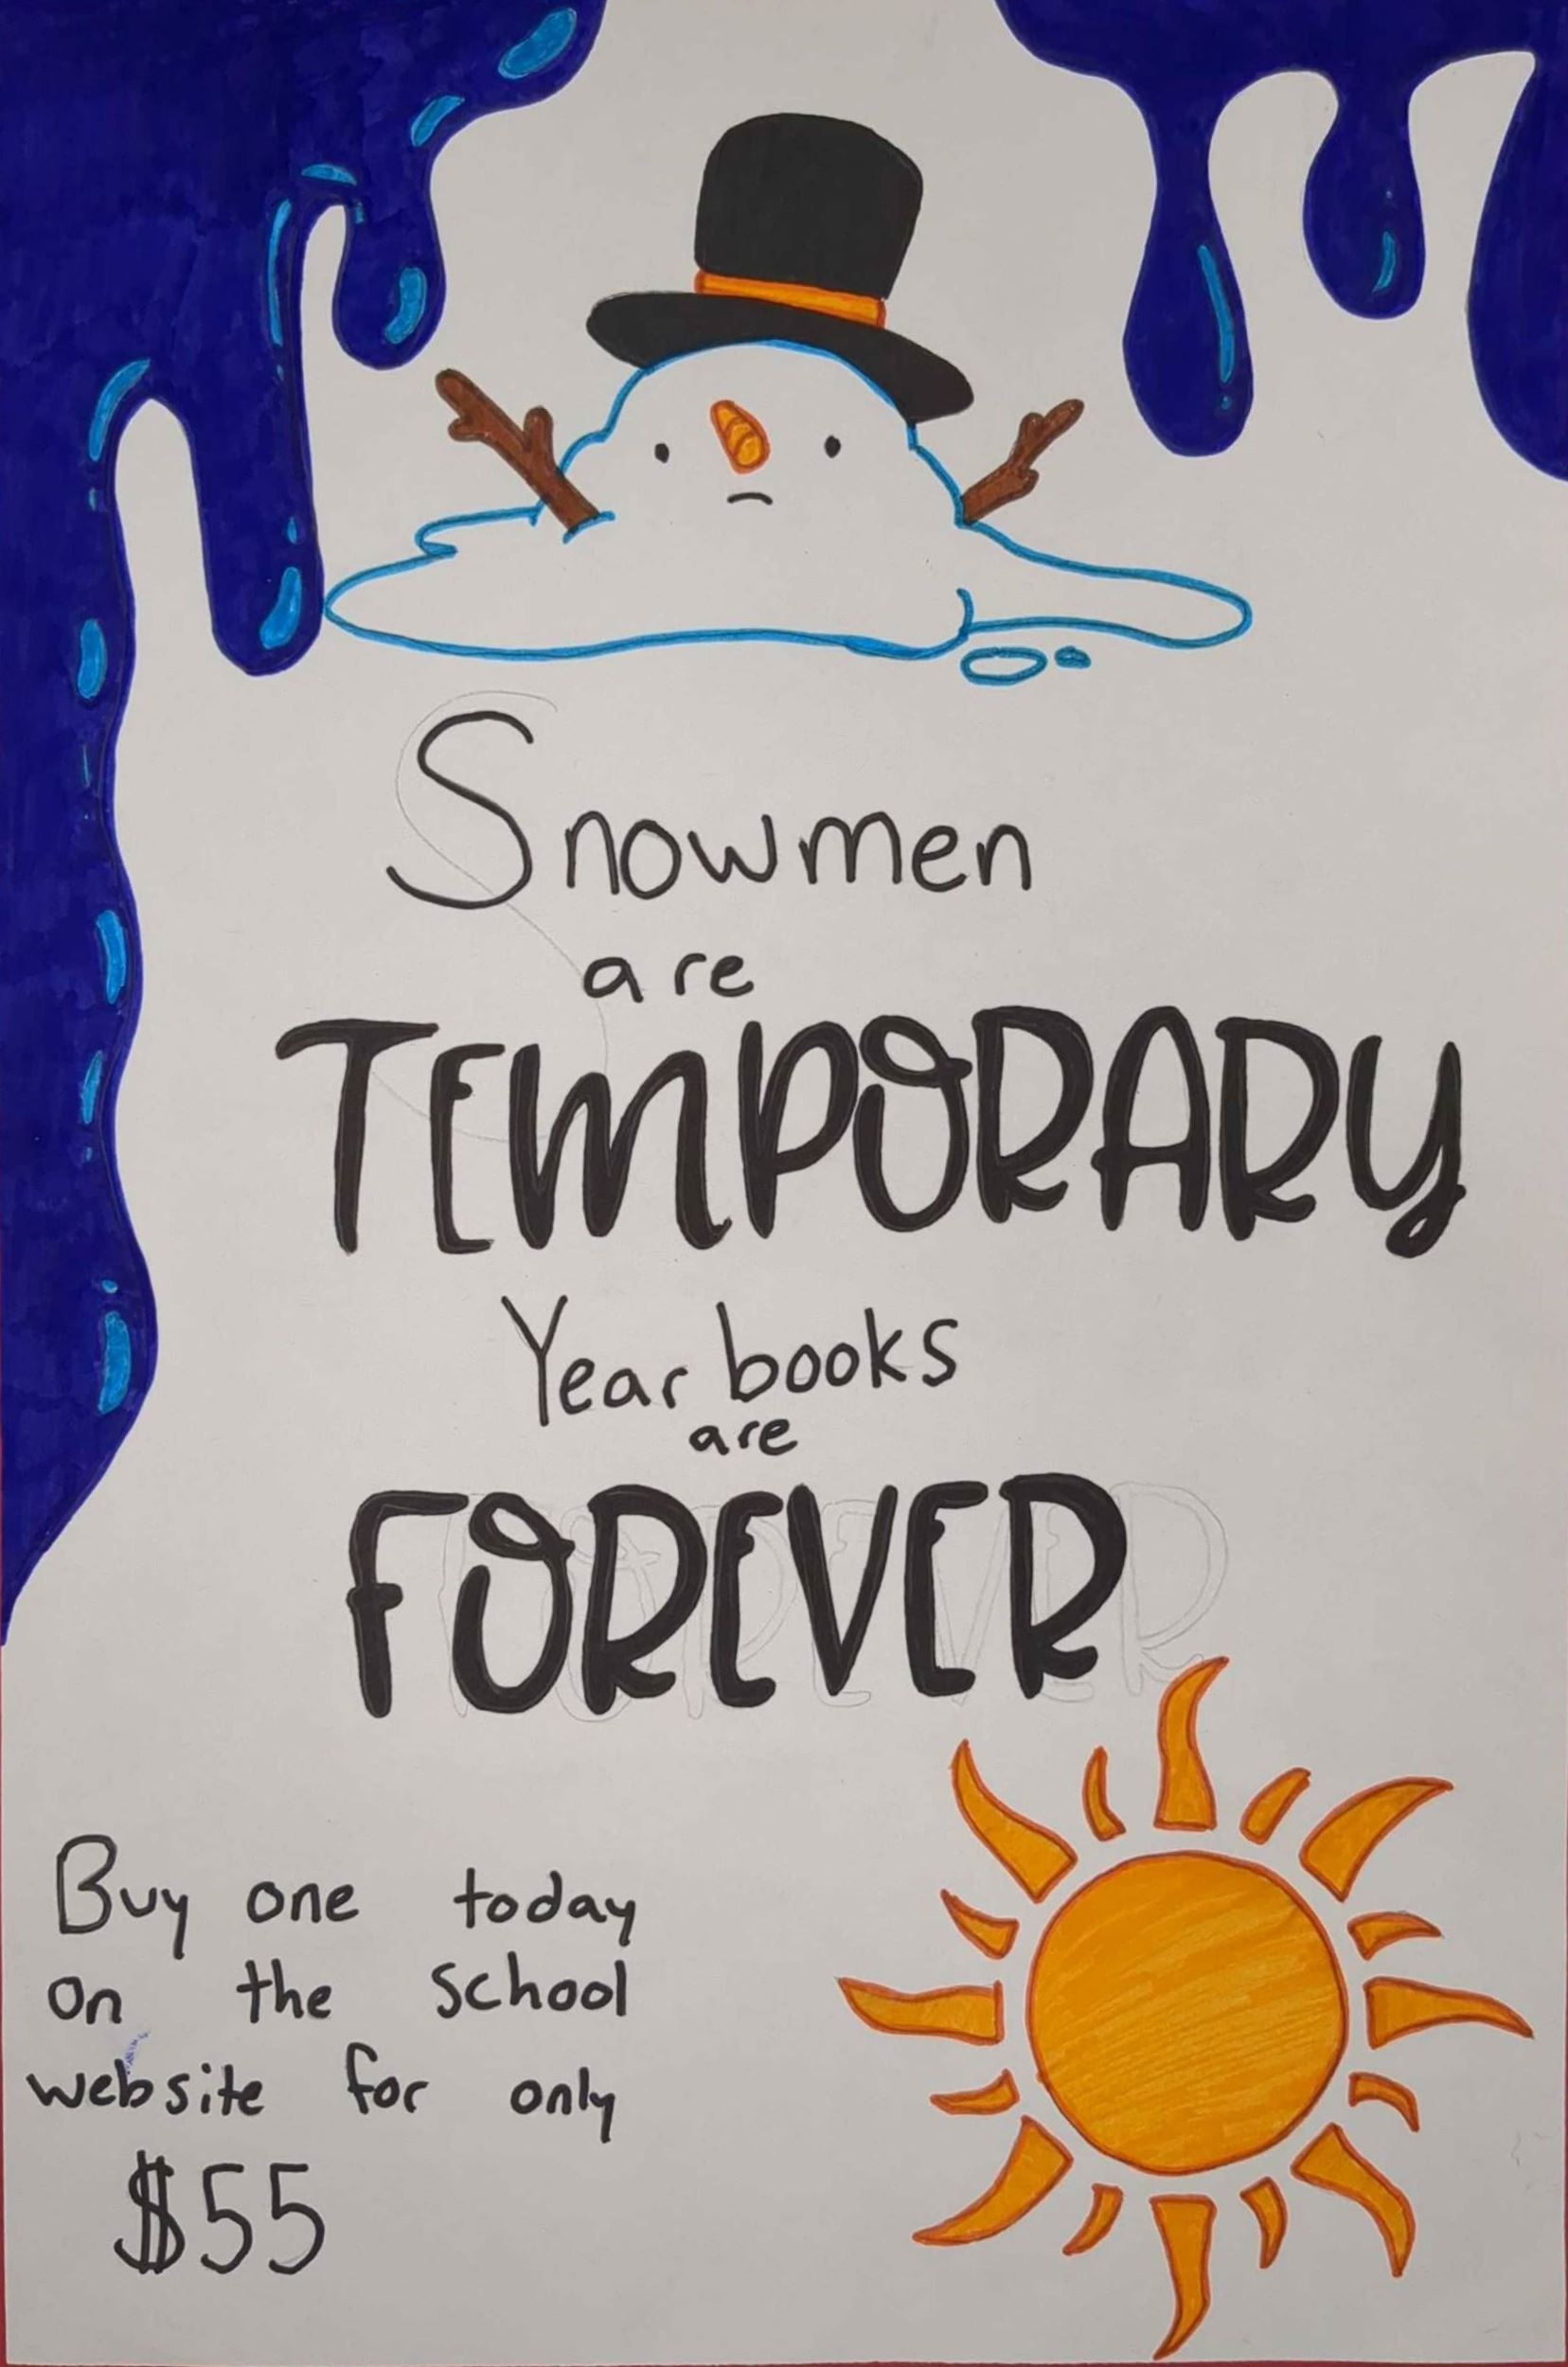 Snowmen
are
TEMPORARY
Year books
are
FOREVER
Buy one today
on the school
website for only
$55